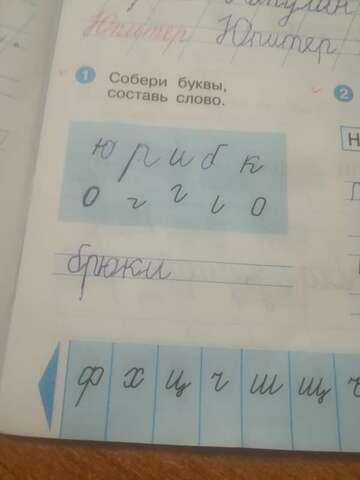 Юпитер Юпитер
1 Собери буквы, 2
составь слово.
ю р и б к
брюки
ф х ц ч ш щ